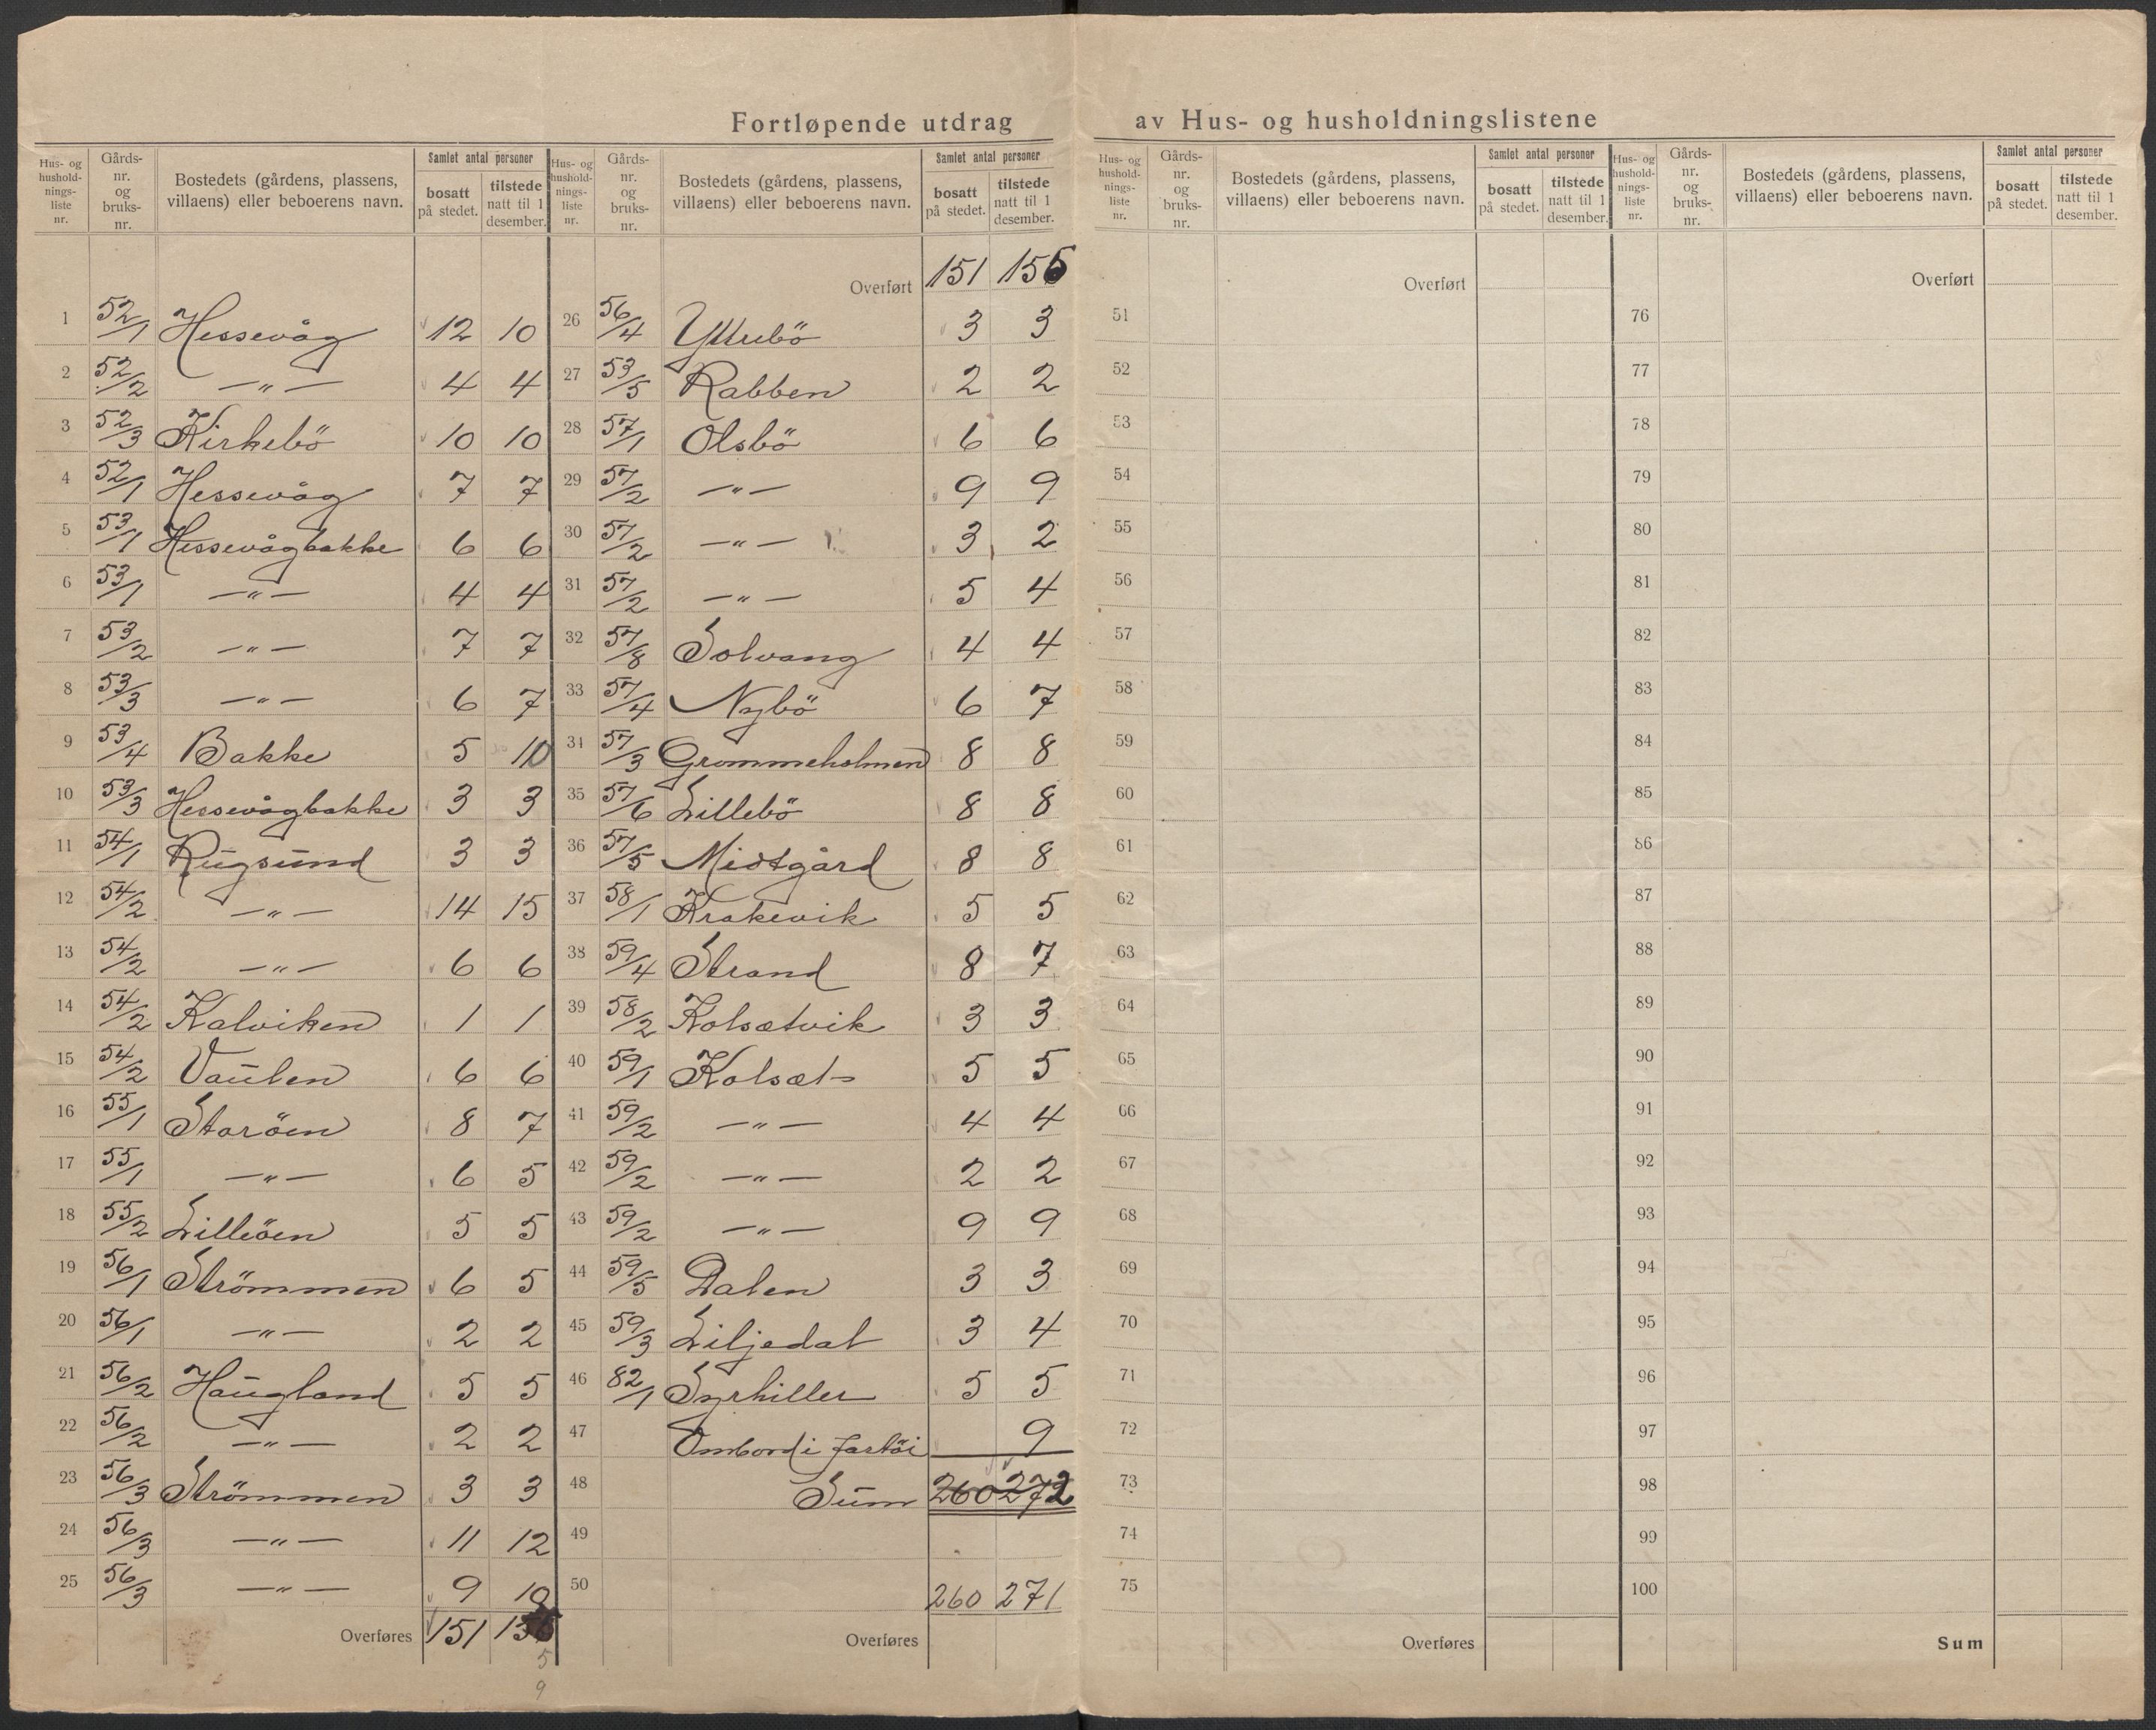 Fortløpende utdrag av Hus- og husholdningslistene
Hus- og hushold-nings-liste nr. Gårds-nr. og bruks-nr. Bostedets (gårdens, plassens, villaens) eller beboerens navn. Samlet antal personer bosatt på stedet. tilstede natt til 1 desember.
1 52/1 Hessevåg 12 10
2 52/2 —"— 4 4
3 52/3 Kirkebö 10 10
4 52/1 Hessevåg 7 7
5 53/1 Hessevågbakke 6 6
6 53/1 —"— 4 4
7 53/2 —"— 7 7
8 53/3 —"— 6 7
9 53/4 Bakke 5 10
10 53/3 Hessevågbakke 3 3
11 54/1 Rugsund 3 3
12 54/2 —"— 14 15
13 54/2 —"— 6 6
14 54/2 Kalviken 1 1
15 54/2 Vaulen 6 6
16 55/1 Storöen 8 7
17 55/1 —"— 6 5
18 55/2 Lilleöen 5 5
19 56/1 Strömmen 6 5
20 56/1 —"— 2 2
21 56/2 Haugland 5 5
22 56/2 —"— 2 2
23 56/3 Strömmen 3 3
24 56/3 —"— 11 12
25 56/3 —"— 9 10
Overføres 151
5
9
Hus- og hushold-nings-liste nr. Gårds-nr. og bruks-nr. Bostedets (gårdens, plassens, villaens) eller beboerens navn. Samlet antal personer bosatt på stedet. tilstede natt til 1 desember.
Overført 151 155
26 56/4 Yttrebö 3 3
27 53/5 Rabben 2 2
28 57/1 Olsbö 6 6
29 57/2 —"— 9 9
30 57/2 —"— 3 2
31 57/2 —"— 5 4
32 57/8 Solvang 4 4
33 57/4 Nybö 6 7
34 57/3 Grommeholmen 8 8
35 57/6 Lillebö 8 8
36 57/5 Midtgård 8 8
37 58/1 Krakevik 5 5
38 59/4 Strand 8 7
39 58/2 Kolsætvik 3 3
40 59/1 Kolsæt 5 5
41 59/2 —"— 4 4
42 59/2 —"— 2 2
43 59/2 —"— 9 9
44 59/5 Dalen 3 3
45 59/3 Liljedal 3 4
46 82/1 Syrhiller 5 5
47 Ombord i fartöi 9
48 Sum 260 272
49
50 260 271
Overføres
Hus- og hushold-nings-liste nr. Gårds-nr. og bruks-nr. Bostedets (gårdens, plassens, villaens) eller beboerens navn. Samlet antal personer bosatt på stedet. tilstede natt til 1 desember.
Overført
51
52
53
54
55
56
57
58
59
60
61
62
63
64
65
66
67
68
69
70
71
72
73
74
75
Overføres
Hus- og hushold-nings-liste nr. Gårds-nr. og bruks-nr. Bostedets (gårdens, plassens, villaens) eller beboerens navn. Samlet antal personer bosatt på stedet. tilstede natt til 1 desember.
Overført
76
77
78
79
80
81
82
83
84
85
86
87
88
89
90
91
92
93
94
95
96
97
98
99
100
Sum